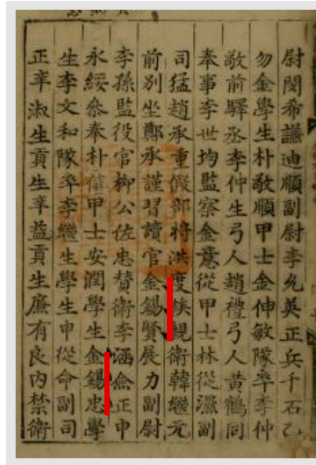 尉閔希謙迪順副尉李允英正兵千石乙
勿金學生朴敬順甲士金仲敏隊卒李仲
敬前驛丞李仲生弓人趙禮弓人黃鶴同
奉事李世均監察金意從甲士林從副
司猛趙承重假部將洪衛韓繼元
前別坐鄭承謹習讀官金錫賢展力副尉
李孫監役官柳公佐忠贊衛李涵僉正申
永綏叅奉朴甲士安潤學生金錫忠學
生李文和隊卒李繼生學生申從命副司
正辛淑生貢生辛益貢生廉有良內禁衛